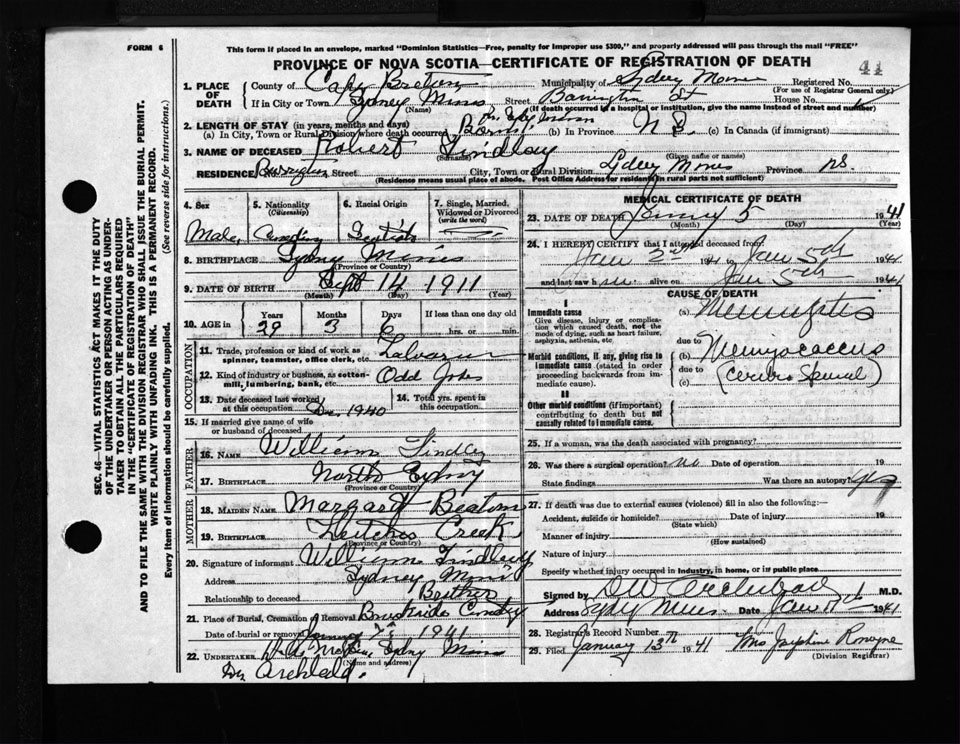 FORM 6
This form if placed in an envelope, marked "Dominion Statistics—Free, penalty for improper use $300," and properly addressed will pass through the mail "FREE"
PROVINCE OF NOVA SCOTIA—CERTIFICATE OF REGISTRATION OF DEATH
41
SEC. 46—VITAL STATISTICS ACT MAKES IT THE DUTY
OF THE UNDERTAKER OR PERSON ACTING AS UNDER-
TAKER TO OBTAIN ALL THE PARTICULARS REQUIRED
IN THE "CERTIFICATE OF REGISTRATION OF DEATH"
AND TO FILE THE SAME WITH THE DIVISION REGISTRAR WHO SHALL ISSUE THE BURIAL PERMIT.
WRITE PLAINLY WITH UNFADING INK. THIS IS A PERMANENT RECORD.
Every item of Information should be carefully supplied. (See reverse side for instructions.)
1. PLACE OF DEATH
County of Cape Breton Municipality of Sydney Mines Registered No.
(For use of Registrar General only)
If in City or Town Sydney Mines Street St House No.
(Name) (If death occurred in a hospital or institution, give name instead of street and number)
2. LENGTH OF STAY (in years, months and days)
(a) In City, Town or Rural Division where death occurred (b) In Province (c) In Canada (if immigrant)
3. NAME OF DECEASED Robert Findlay
(Surname) (Given name or names)
RESIDENCE Street City, Town or Rural Division Sydney Mines Province NS
(Residence means usual place of abode. Post Office Address for residents in rural parts not sufficient)
4. Sex Male
5. Nationality (Citizenship) Canadian
6. Racial Origin Scottish
7. Single, Married, Widowed or Divorced (write the word)
8. BIRTHPLACE Sydney Mines
(Province or Country)
9. DATE OF BIRTH Sept 14 1911
(Month) (Day) (Year)
10. AGE in Years 29 Months 3 Days If less than one day old hrs. or min.
OCCUPATION
11. Trade, profession or kind of work as spinner, teamster, office clerk, etc.
12. Kind of industry or business, as cotton-mill, lumbering, bank, etc. Odd Jobs
13. Date deceased last worked at this occupation Dec. 1940
14. Total yrs. spent in this occupation.
15. If married give name of wife or husband of deceased
FATHER
16. NAME William Findlay
17. BIRTHPLACE North Sydney
(Province or Country)
MOTHER
18. MAIDEN NAME Margaret Beaton
19. BIRTHPLACE Leitches Creek
(Province or Country)
20. Signature of informant William Findlay
Address Sydney Mines
Relationship to deceased Brother
21. Place of Burial, Cremation or Removal Cemetery
Date of burial or removal January 1941
22. UNDERTAKER Sydney Mines
(Name and address)
Dr. Archibald.
MEDICAL CERTIFICATE OF DEATH
23. DATE OF DEATH 5 1941
(Month) (Day) (Year)
24. I HEREBY CERTIFY that I attended deceased from:
Jan 2nd 1941 to Jan 5th 1941
and last saw h alive on Jan 5th 1941
CAUSE OF DEATH
I
Immediate cause
Give disease, injury or complication which caused death, not the mode of dying, such as heart failure, asphyxia, asthenia, etc.
(a) Meningitis
due to
Morbid conditions, if any, giving rise to immediate cause (stated in order proceeding backwards from immediate cause).
(b)
due to
(c) (cerebro Spinal)
II
Other morbid conditions (if important) contributing to death but not causally related to immediate cause.
25. If a woman, was the death associated with pregnancy?
26. Was there a surgical operation? no Date of operation 19
State findings Was there an autopsy?
27. If death was due to external causes (violence) fill in also the following:—
Accident, suicide or homicide? Date of injury 19
(State which)
Manner of injury
(How sustained)
Nature of injury
Specify whether injury occurred in Industry, in home, or in public place
Signed by Archibald M.D.
Address Sydney Mines Date Jan 11th 1941
28. Registrar's Record Number
29. Filed January 13th 1941 Mrs Josephine
(Division Registrar)